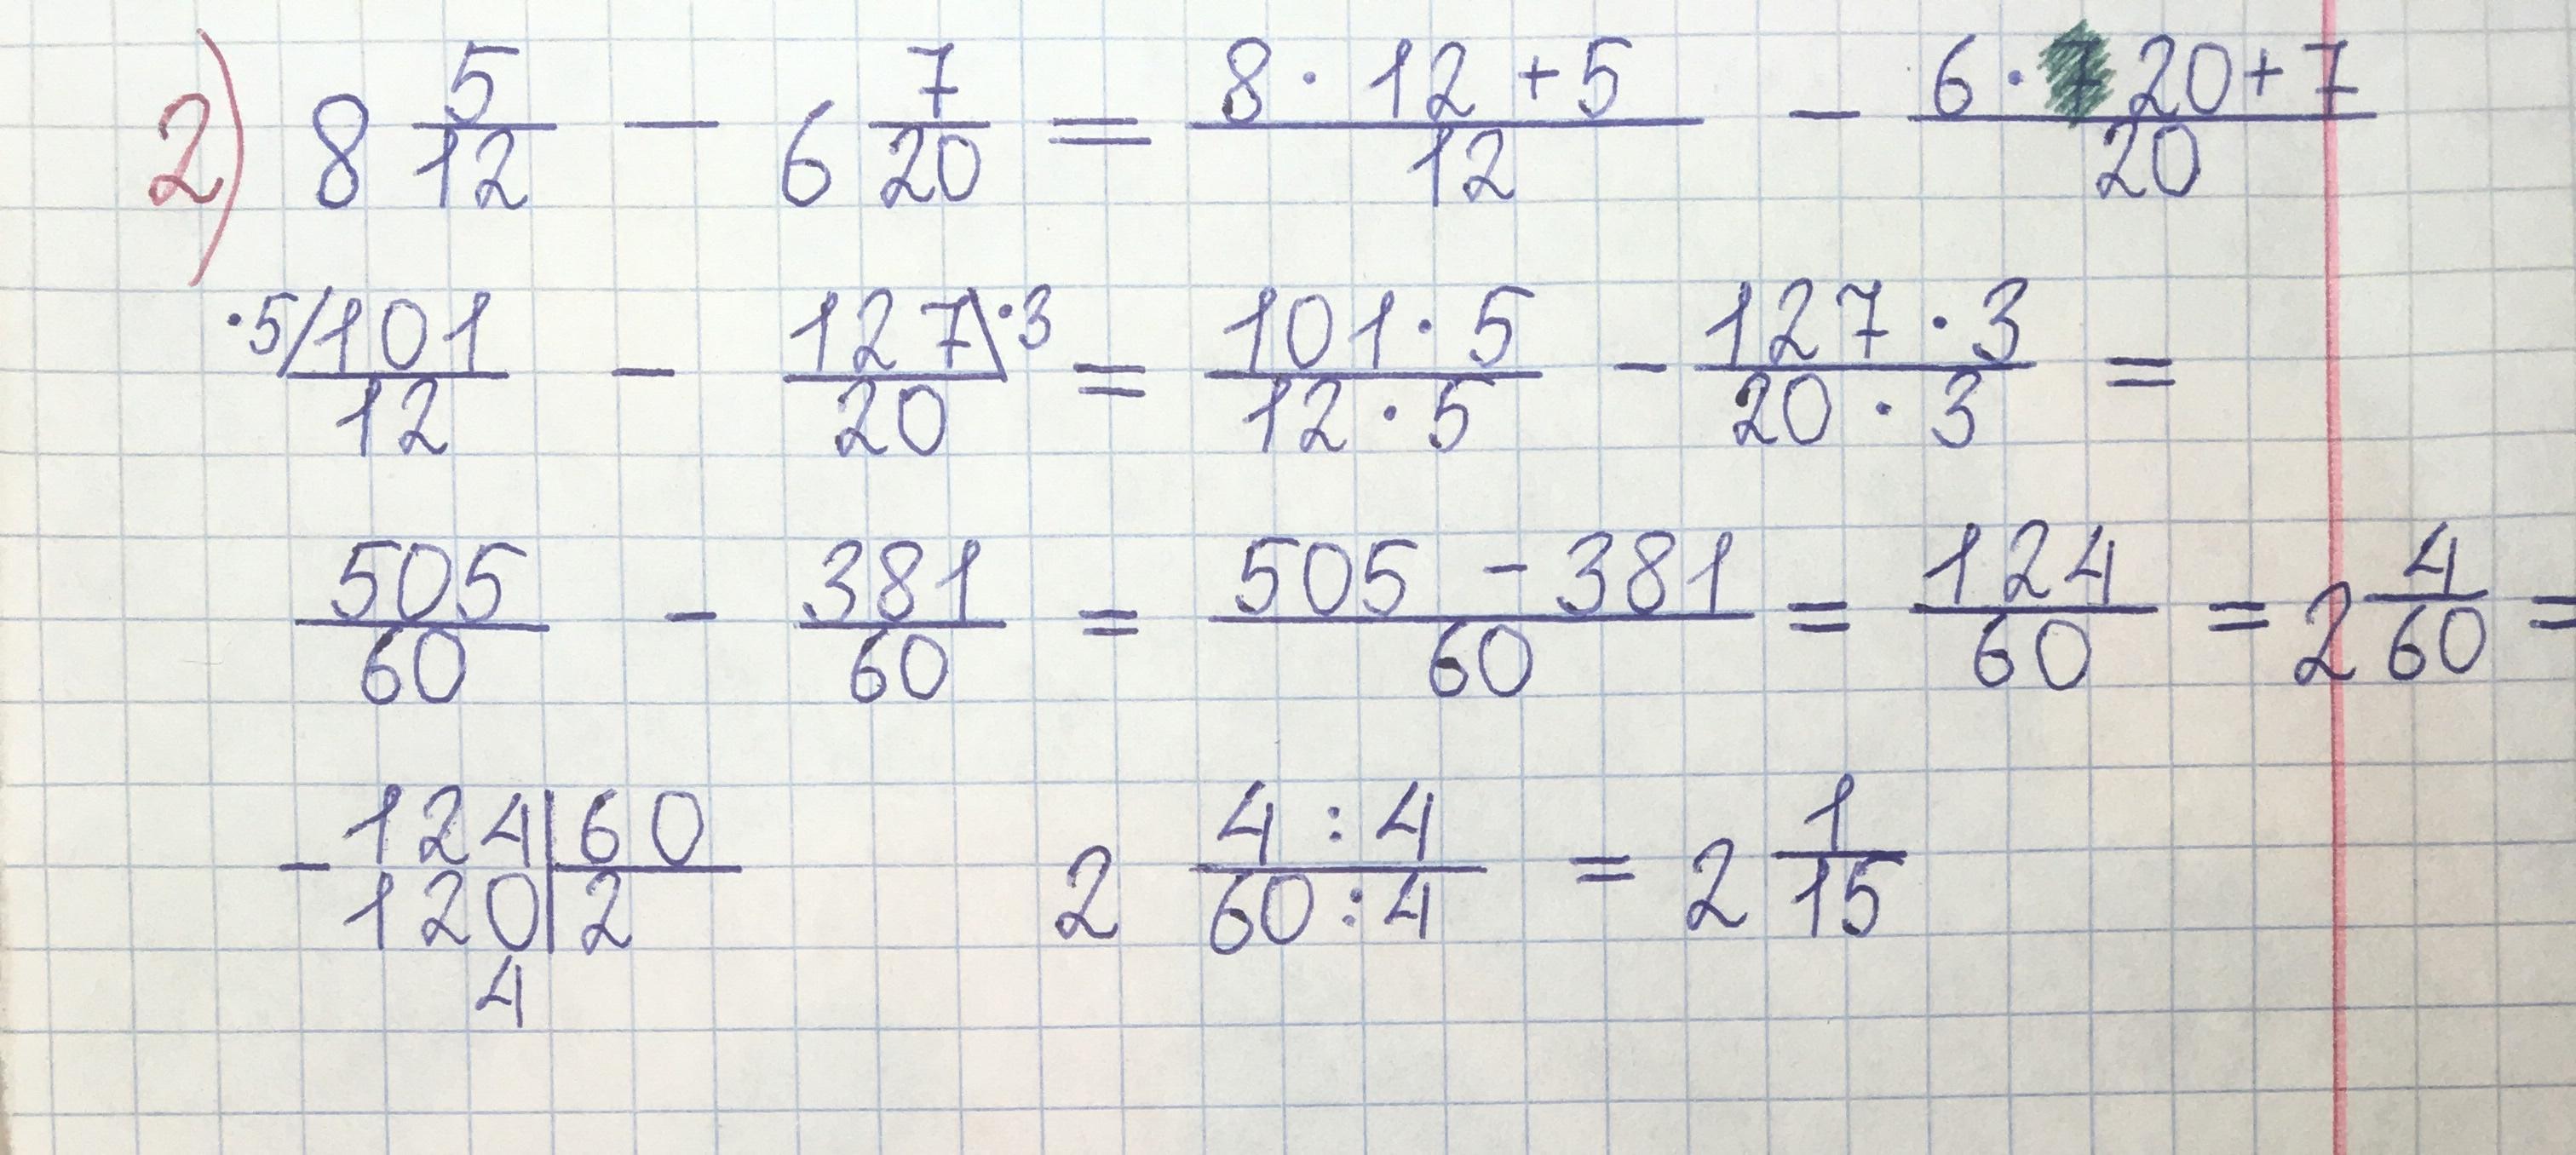 2) 8 5/12 − 6 7/20 = (8 · 12 + 5)/12 − (6 · 20 + 7)/20
·5/ 101/12 − 127/20 \·3 = (101 · 5)/(12 · 5) − (127 · 3)/(20 · 3) =
505/60 − 381/60 = (505 − 381)/60 = 124/60 = 2 4/60 =
− 124 | 60    2 (4 : 4)/(60 : 4) = 2 1/15
120 | 2
4